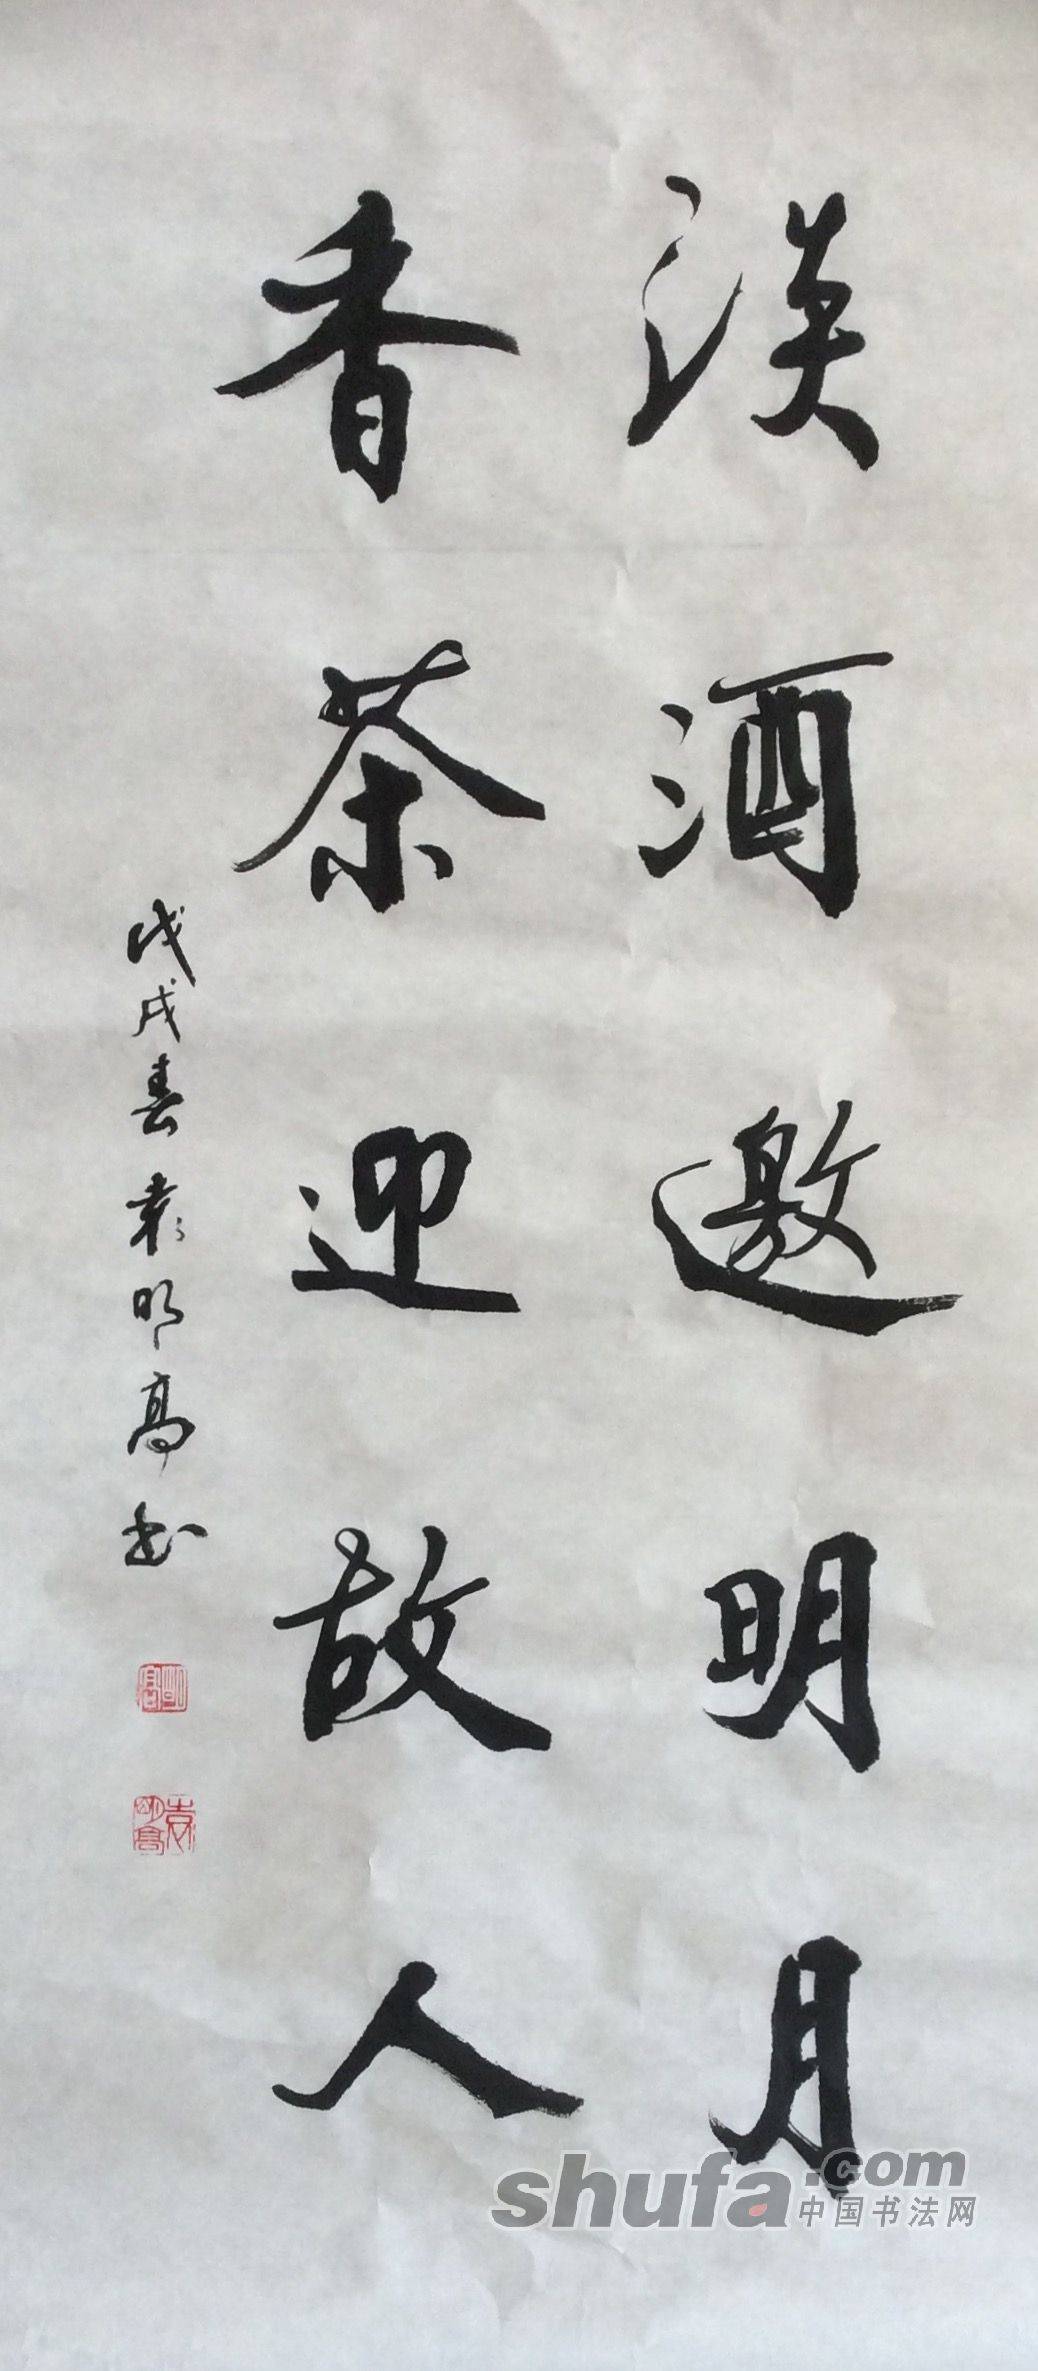 漢酒邀明月
香茶迎故人
戊戌春袁明高书
明高
袁明高
shufa.com
中国书法网